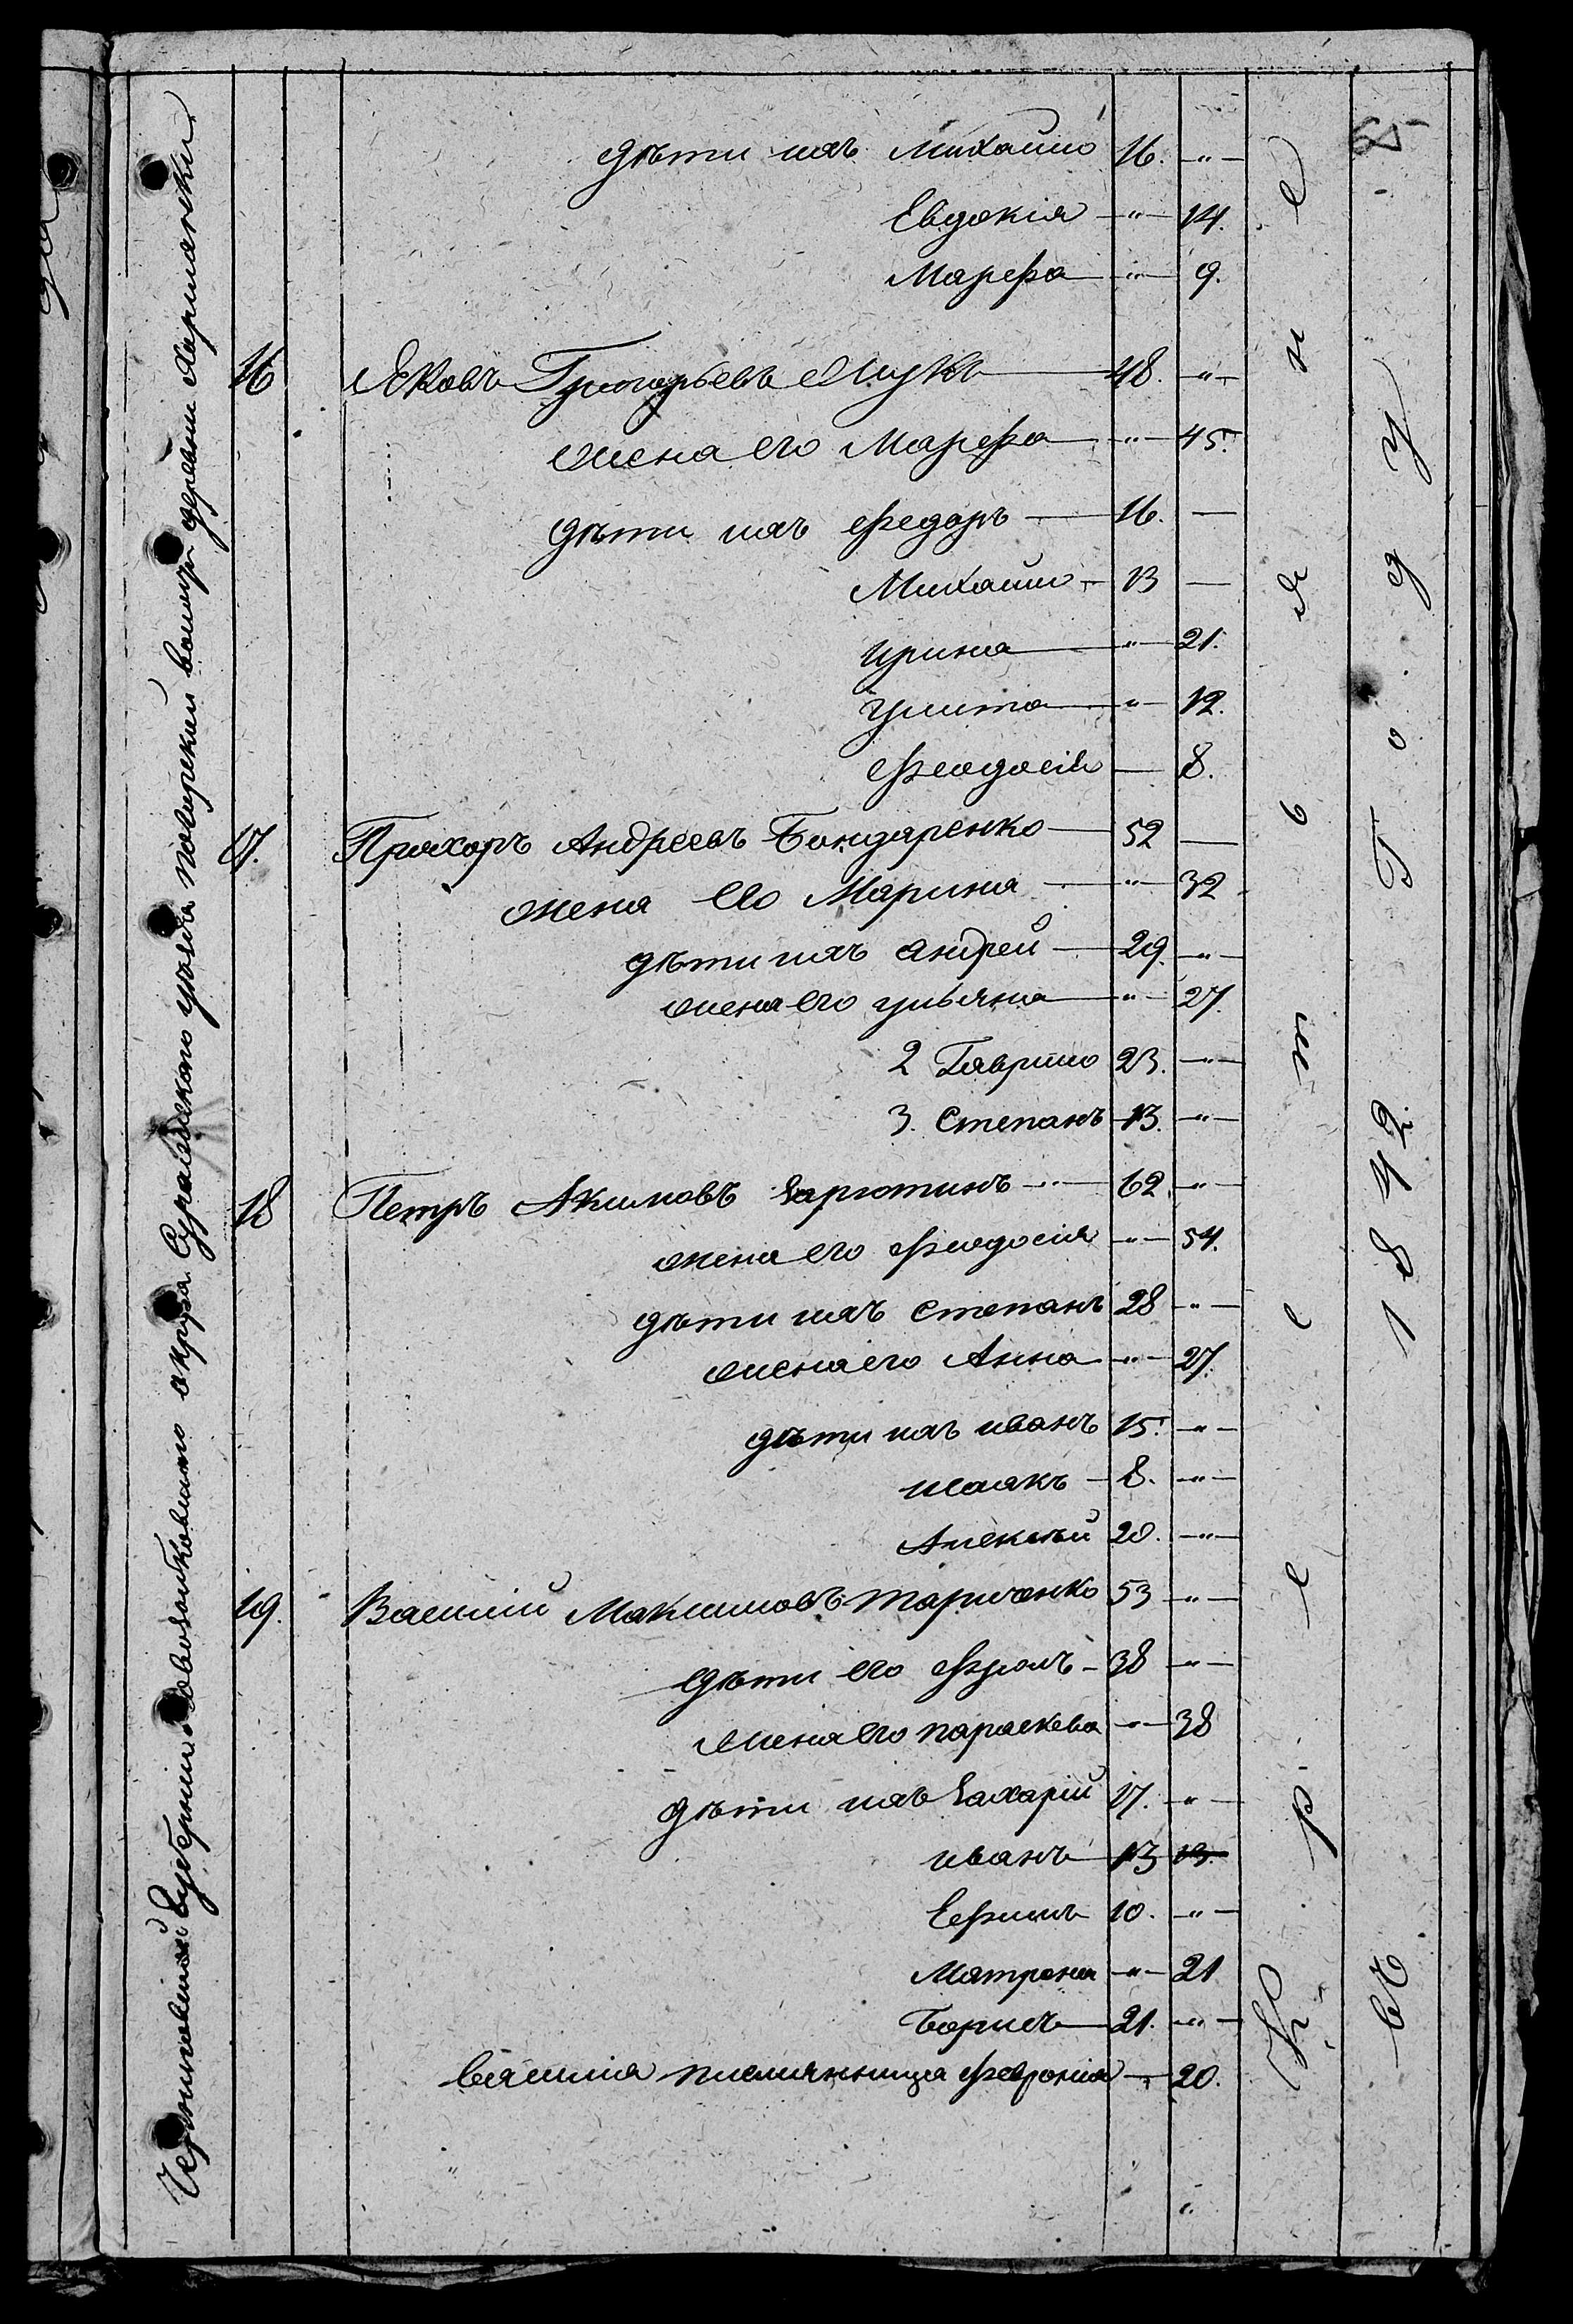 65
дѣти ихъ Михайло 16. "
Евдокія " 14.
Марфа " 9.
16 Яковъ Григорьевъ 48. "
жена его Марфа " 45.
дѣти ихъ Федоръ 16. —
Михайло 13 —
Ирина " 21.
Улита " 12.
Феодосія — 8.
17. Прохоръ Андреевъ Бондаренко 52 —
жена его Марина " 32
дѣти ихъ Андрей 29. "
жена его Ульяна " 27.
2 Гаврило 23. "
3. Степанъ 13. "
18 Петръ Акимовъ Харютинъ 62. "
жена его Феодосія " 54.
дѣти ихъ Степанъ 28 "
жена его Анна " 27.
дѣти ихъ Иванъ 15. "
Исаакъ 8. "
Алексѣй 20. "
19. Василий Максимовъ 53 "
дѣти его Фролъ 38 "
жена его Параскева " 38
дѣти ихъ Захарій 17. "
Иванъ 13 13.
Ефимъ 10. "
Матрена " 21
Борисъ 21. "
Василія племянница Феврония " 20.
Черниговской Губерніи Новозыбковскаго округа Суражскаго уѣзда волости деревни
Переетвляне
въ 1872. Году